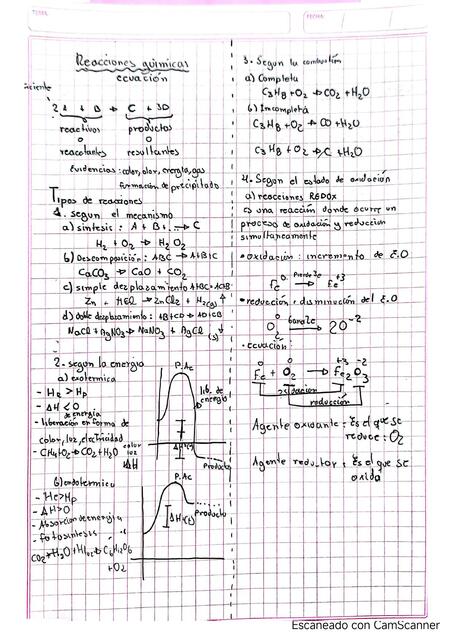 TEMA:
FECHA:
Reacciones químicas
ecuación
2A + B → C + 3D
reactivos productos
o o
reactantes resultantes
Evidencias: color, olor, energía, gas
formación de precipitado
Tipos de reacciones
1. según el mecanismo
a) sintesis: A + B → C
H2 + O2 → H2O2
b) Descomposición: ABC → A+B+C
CaCO3 → CaO + CO2
c) simple desplazamiento A+BC=AC+B
Zn + HCl → ZnCl2 + H2(g) ↑
d) doble desplazamiento: AB+CD → AD+CB
NaCl + AgNO3 → NaNO3 + AgCl (s) ↓
2. según la energía
a) exotermica
- HR > Hp
- ΔH < 0
de energía
- liberación en forma de
color, luz, electricidad
- CH4+O2 → CO2+H2O
calor
luz
ΔH
P.Ac
lib. de
energía
Producto
b) endotermica
- ΔH>0
- Absorcion de energía
- fotosintesis
P.Ac
Producto
ΔH(+)
+O2
3. Segun la combustión
a) Completa
C3H8 + O2 → CO2 + H2O
b) Incompleta
C3H8 + O2 → CO + H2O
C3H8 + O2 → C + H2O
4. Segun el estado de oxidación
a) reacciones REDOX
es una reacción donde ocurre un
proceso de oxidación y reduccion
simultaneamente
• oxidación: incremento de E.O
0 Pierde 2e +3
Fe → Fe
• reducción: disminución del E.O
0 gana 2e
O2 → 2O-2
• ecuación:
0 0 +3 -2
Fe + O2 → Fe2O3
oxidacion
reducción
Agente oxidante: Es el que se
reduce: O2
Agente reductor: Es el que se
oxida
Escaneado con CamScanner